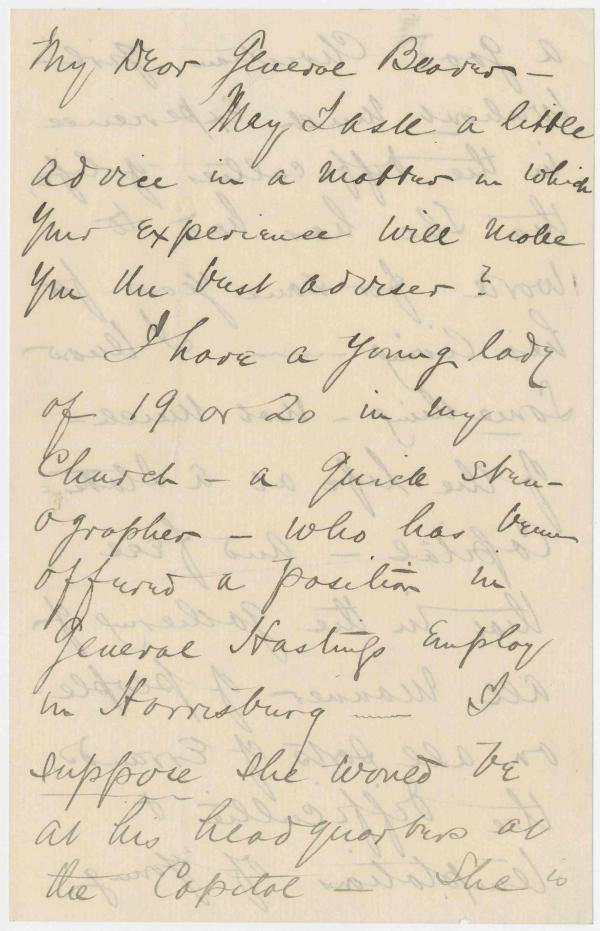 My Dear General Beaver –
May I ask a little
advice in a matter in which
your experience will make
you the best adviser?
I have a young lady
of 19 or 20 in my
Church – a quick sten-
ographer – who has been
offered a position in
General Hastings employ
in Harrisburg — I
suppose she would be
at his headquarters at
the Capitol – She is